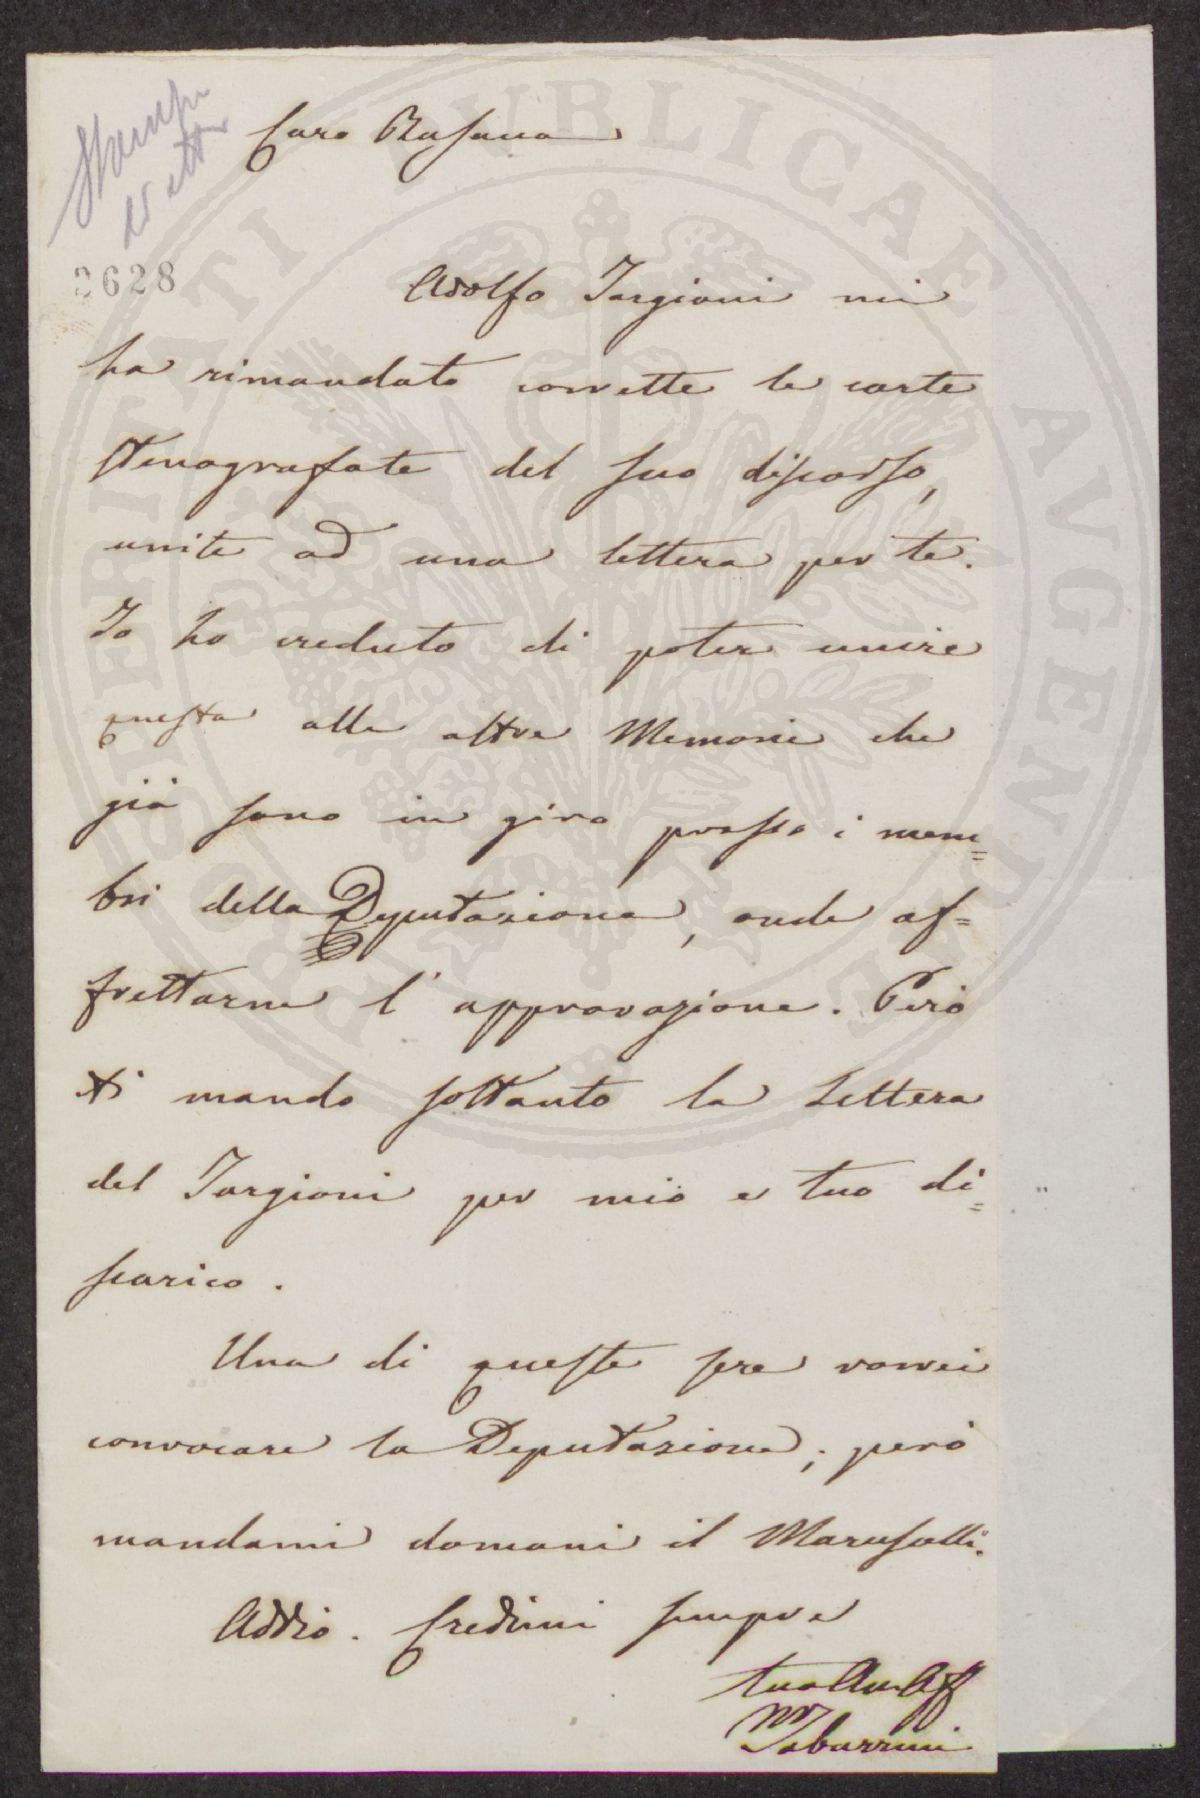 Caro
2628
Adolfo Targioni mi
ha rimandato corrette le carte
stenografate del suo discorso,
unite ad una lettera per te.
Io ho creduto di poter unire
questa alle altre Memorie che
già sono in giro presso i mem=
bri della Deputazione, onde af=
frettarne l'approvazione. Però
ti mando soltanto la Lettera
del Targioni per mio e tuo di=
scarico.
Una di queste sere vorrei
convocare la Deputazione; però
mandami domani il
Addio. Credimi sempre
tuo Am. Aff
M Tabarrini
PROSPERITATI PUBLICAE AVGENDAE